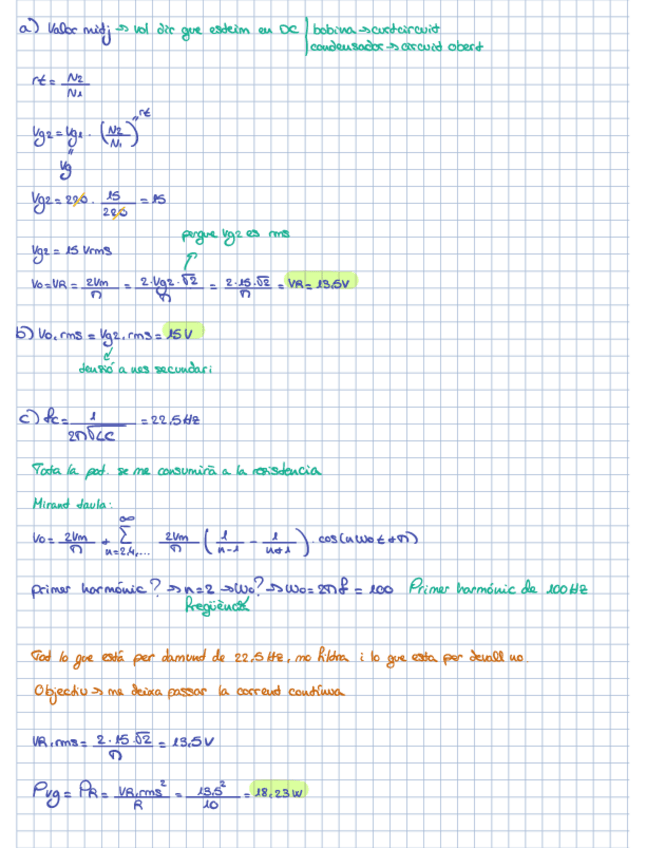 a) Valor mitj → vol dir que esteim en DC | bobina → curtcircuit
condensador → circuit obert
rt = N2/N1
Vg2 = Vg1 · (N2/N1) rt
"
Vg
Vg2 = 220 · 15/220 = 15
perque Vg2 es rms
Vg2 = 15 Vrms
Vo = VR = 2Vm/π = 2·Vg2·√2/π = 2·15·√2/π = VR = 13,5V
b) Vo,rms = Vg2,rms = 15V
tensió a nes secundari
c) fc = 1/2π√LC = 22,5Hz
Tota la pot. se me consumirà a la resistencia
Mirant taula:
Vo = 2Vm/π + ∞∑n=2,4,... 2Vm/π (1/n-1 - 1/n+1) · cos(nωot+π)
primer harmónic? → n=2 → ωo? → ωo = 2πf = 100 Primer harmónic de 100Hz
freqüència
Tot lo que está per damunt de 22,5Hz, mo filtra i lo que esta per devall no.
Objectiu → me deixa passar la corrent contínua
VR,rms = 2·15·√2/π = 13,5V
Pvg = PR = VR,rms²/R = 13,5²/10 = 18,23W